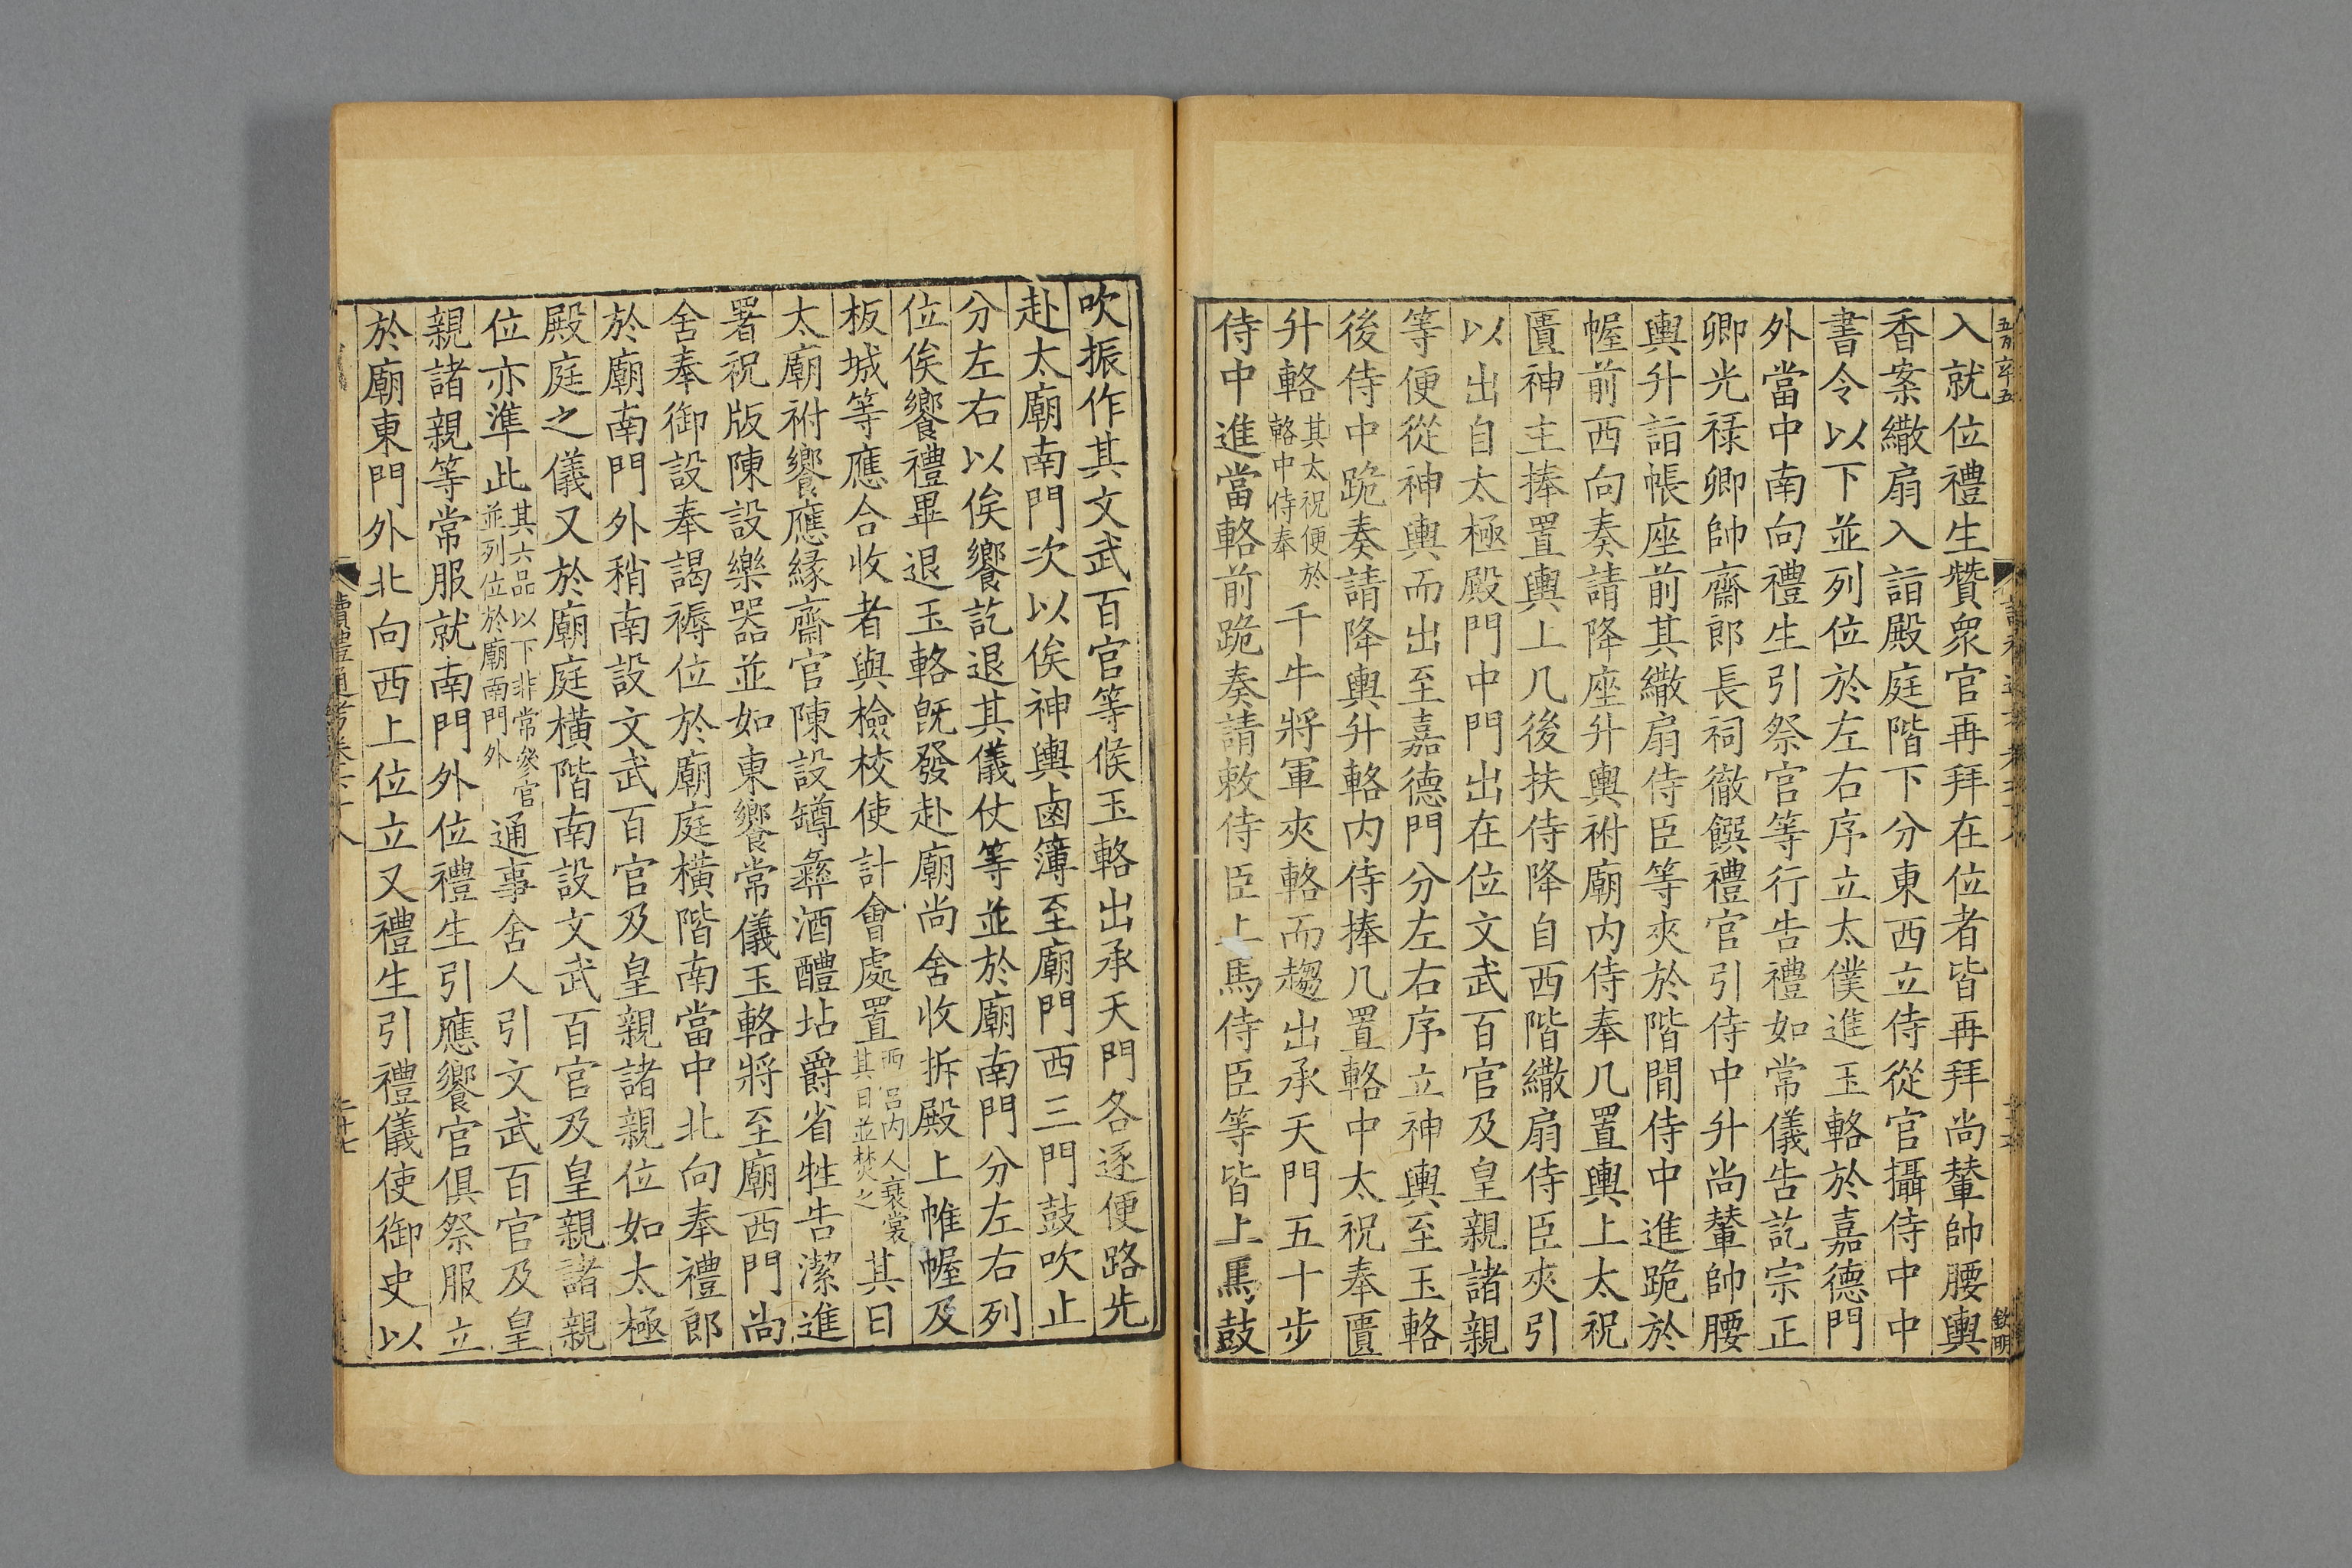 入就位禮生贊衆官再拜在位者皆再拜尚輦帥腰輿
香案繖扇入詣殿庭階下分東西立侍從官攝侍中中
書令以下並列位於左右序立太僕進玉輅於嘉德門
外當中南向禮生引祭官等行告禮如常儀告訖宗正
卿光祿卿帥齋郎長祠徹饌禮官引侍中升尚輦帥腰
輿升詣帳座前其繖扇侍臣等夾於階間侍中進跪於
幄前西向奏請降座升輿祔廟內侍奉几置輿上太祝
匱神主捧置輿上几後扶侍降自西階繖扇侍臣夾引
以出自太極殿門中門出在位文武百官及皇親諸親
等便從神輿而出至嘉德門分左右序立神輿至玉輅
後侍中跪奏請降輿升輅內侍捧几置輅中太祝奉匱
升輅其太祝便於輅中侍奉千牛將軍夾輅而趨出承天門五十步
侍中進當輅前跪奏請敕侍臣上馬侍臣等皆上馬鼓
吹振作其文武百官等候玉輅出承天門各逐便路先
赴太廟南門次以俟神輿鹵簿至廟門西三門鼓吹止
分左右以俟饗訖退其儀仗等並於廟南門分左右列
位俟饗禮畢退玉輅旣發赴廟尚舍收拆殿上帷幄及
板城等應合收者與檢校使計會處置西呂內人衰裳其日並焚之其日
太廟祔饗應緣齋官陳設罇彝酒醴坫爵省牲告潔進
署祝版陳設樂器並如東饗常儀玉輅將至廟西門尚
舍奉御設奉謁褥位於廟庭橫階南當中北向奉禮郎
於廟南門外稍南設文武百官及皇親諸親位如太極
殿庭之儀又於廟庭橫階南設文武百官及皇親諸親
位亦準此其六品以下非常參官並列位於廟南門外通事舍人引文武百官及皇
親諸親等常服就南門外位禮生引應饗官俱祭服立
於廟東門外北向西上位立又禮生引禮儀使御史以
讀禮通考卷六十八
二十七